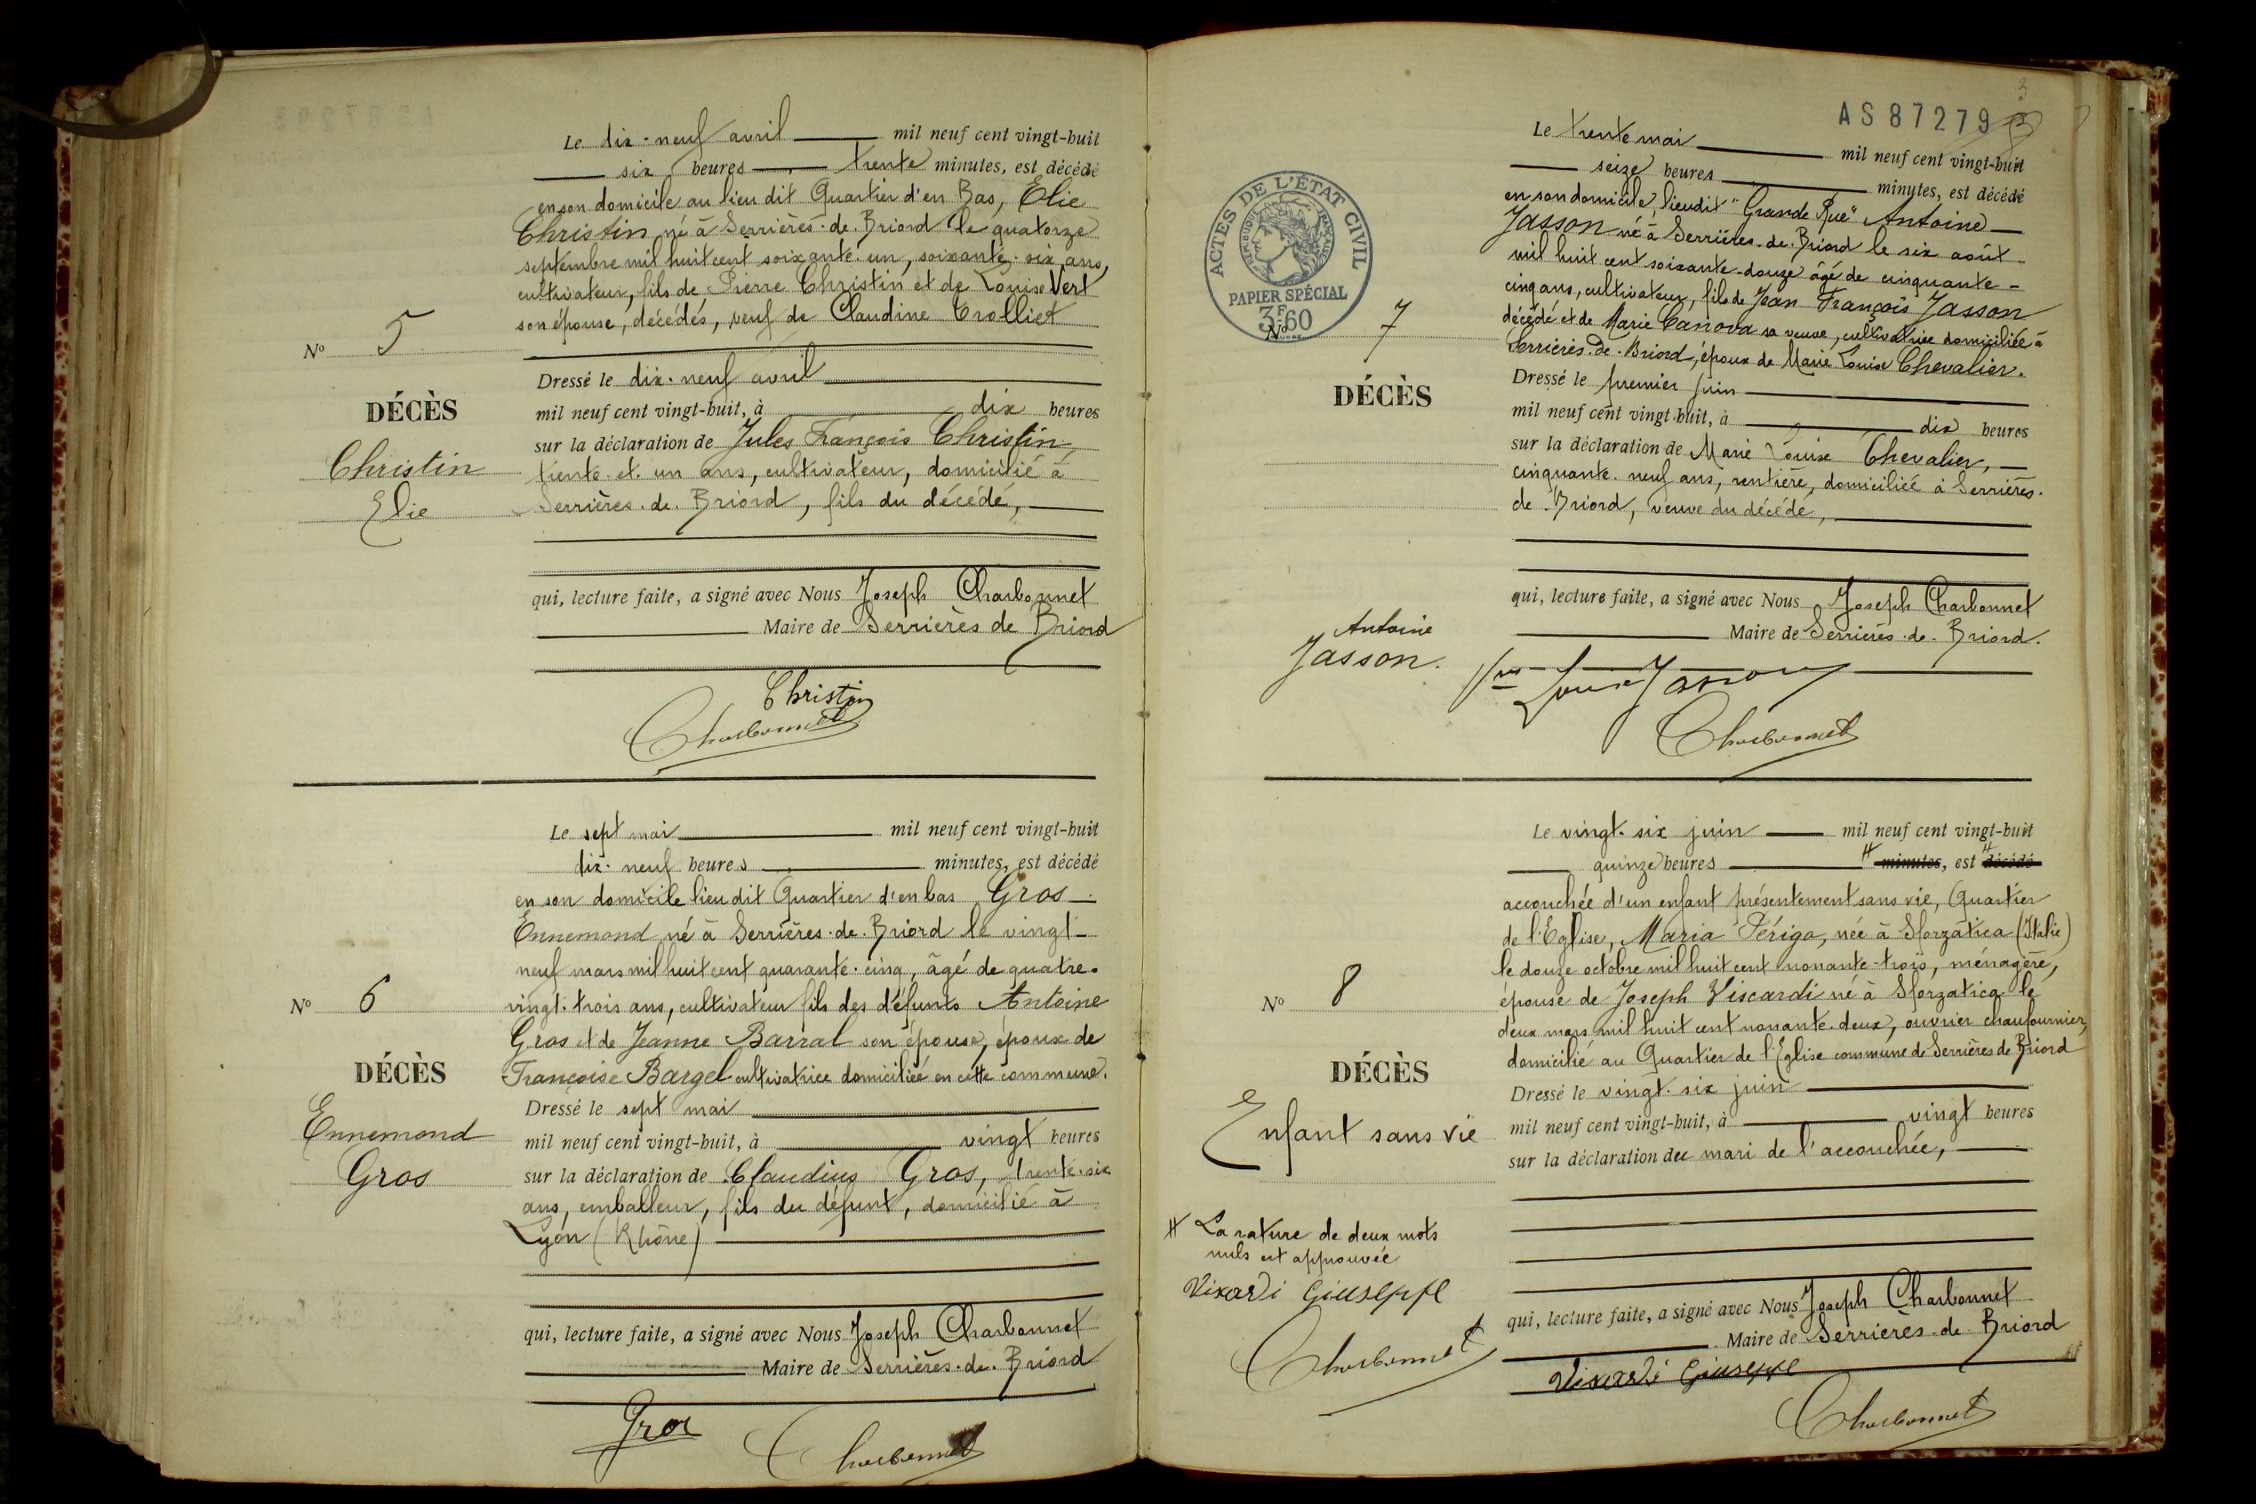 Le dix-neuf avril mil neuf cent vingt-huit
six heures trente minutes, est décédé
en son domicile au lieu dit Quartier d'en Bas, Elie
Christin né à Serrières-de-Briord le quatorze
septembre mil huit cent soixante-un, soixante-six ans,
cultivateur, fils de Pierre Christin et de Louise Vert
son épouse, décédés, veuf de Claudine Trolliet
N° 5
Dressé le dix-neuf avril
DÉCÈS
mil neuf cent vingt-huit, à dix heures
sur la déclaration de Jules François Christin
Christin
trente-et-un ans, cultivateur, domicilié à
Elie
Serrières-de-Briord, fils du décédé,
qui, lecture faite, a signé avec Nous Joseph Charbonnet
Maire de Serrières de Briord
Christin
Charbonnet
Le sept mai mil neuf cent vingt-huit
dix-neuf heures minutes, est décédé
en son domicile lieu dit Quartier d'en bas Gros
Ennemond né à Serrières-de-Briord le vingt-
neuf mars mil huit cent quarante-cinq, âgé de quatre-
N° 6
vingt-trois ans, cultivateur fils des défunts Antoine
Gros et de Jeanne Barral son épouse, époux de
DÉCÈS
Françoise Bargel cultivatrice domiciliée en cette commune.
Dressé le sept mai
Ennemond
mil neuf cent vingt-huit, à vingt heures
Gros
sur la déclaration de Claudius Gros, trente-six
ans, emballeur, fils du défunt, domicilié à
Lyon (Rhône)
qui, lecture faite, a signé avec Nous Joseph Charbonnet
Maire de Serrières-de-Briord
Gros
Charbonnet
3
AS 87279
ACTES DE L'ÉTAT CIVIL
RÉPUBLIQUE FRANÇAISE
PAPIER SPÉCIAL
3F60
Le trente mai mil neuf cent vingt-huit
seize heures minutes, est décédé
en son domicile, lieudit "Grande Rue" Antoine
Jasson né à Serrières-de-Briord le six août
mil huit cent soixante-douze âgé de cinquante-
cinq ans, cultivateur, fils de Jean François Jasson
N° 7
décédé et de Marie Canova sa veuve, cultivatrice domiciliée à
Serrières-de-Briord, époux de Marie Louise Chevalier.
DÉCÈS
Dressé le premier juin
mil neuf cent vingt-huit, à dix heures
sur la déclaration de Marie Louise Chevalier,
cinquante-neuf ans, rentière, domiciliée à Serrières-
de-Briord, veuve du décédé,
qui, lecture faite, a signé avec Nous Joseph Charbonnet
Antoine
Jasson.
Maire de Serrières-de-Briord.
Louise Jasson
Charbonnet
Le vingt-six juin mil neuf cent vingt-huit
quinze heures # minutes, est # décédé
accouchée d'un enfant présentement sans vie, Quartier
de l'Eglise, Maria Périgo, née à Sforzàtica (Italie)
le douze octobre mil huit cent nonante-trois, ménagère,
N° 8
épouse de Joseph Viscardi né à Sforzatica le
deux mars mil huit cent nonante-deux, ouvrier chaufournier,
domicilié au Quartier de l'Eglise commune de Serrières de Briord
DÉCÈS
Dressé le vingt-six juin
Enfant sans vie
mil neuf cent vingt-huit, à vingt heures
sur la déclaration du mari de l'accouchée,
# La rature de deux mots
nuls est approuvée
Viscardi Giuseppe
Charbonnet
qui, lecture faite, a signé avec Nous Joseph Charbonnet
Maire de Serrières-de-Briord
Viscardi Giuseppe
Charbonnet